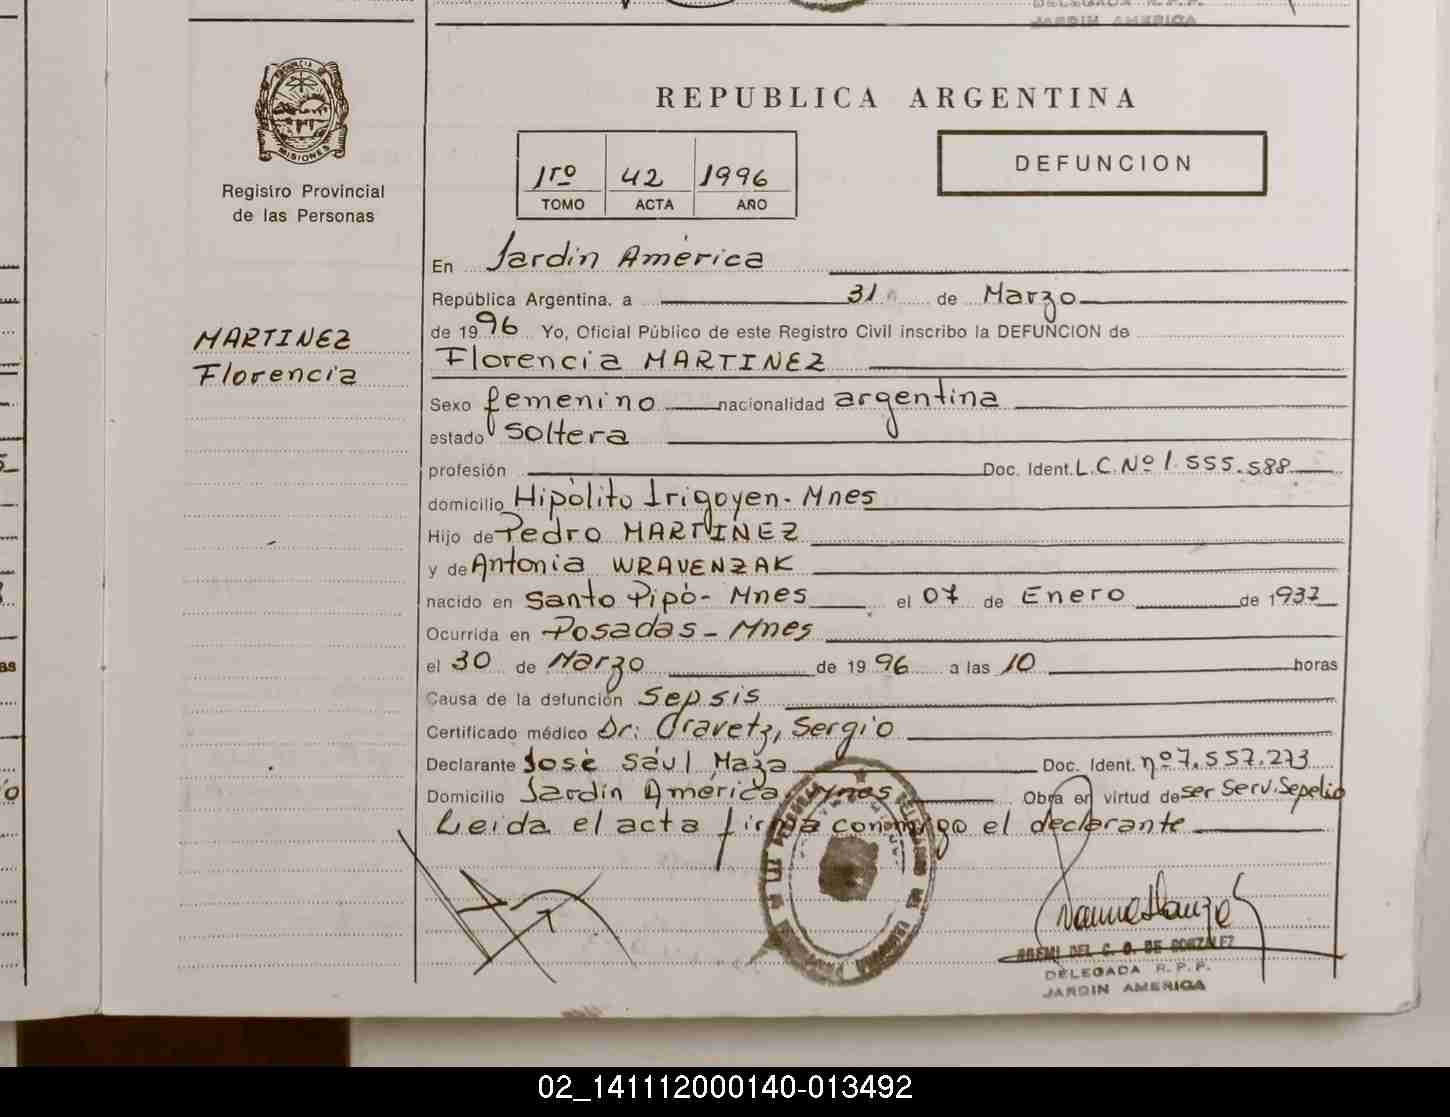 DELEGADA R.P.P.
JARDIN AMERICA
PROVINCIA DE
MISIONES
Registro Provincial
de las Personas
REPUBLICA ARGENTINA
1ro 42 1996
TOMO ACTA AÑO
DEFUNCION
En Jardin América
República Argentina, a 31 de Marzo
de 1996 Yo, Oficial Público de este Registro Civil inscribo la DEFUNCION de
MARTINEZ
Florencia
Florencia MARTINEZ
Sexo femenino nacionalidad argentina
estado soltera
profesión Doc. Ident. L.C.Nº 1.555.588
domicilio Hipòlito Irigoyen - Mnes
Hijo de Pedro MARTINEZ
y de Antonia WRAVENZAK
nacido en Santo Pipò - Mnes el 07 de Enero de 1937
Ocurrida en Posadas - Mnes
el 30 de Marzo de 1996 a las 10 horas
Causa de la defunción Sepsis
Certificado médico Dr: Oravetz, Sergio
Declarante Josè Sául Maza Doc. Ident. nº 7.557.273
Domicilio Jardin América Mnes Obra en virtud de ser Serv. Sepelio
Leida el acta firma conmigo el declarante
DELEGADA R.P.P.
JARDIN AMERICA
02_141112000140-013492